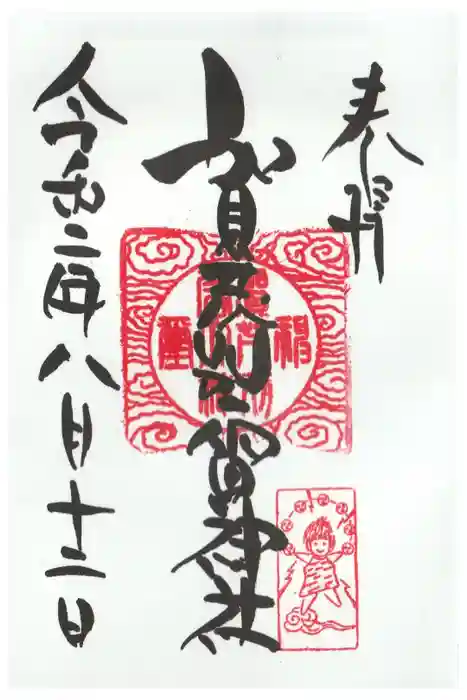 奉拝
賀茂別雷神社
令和二年八月十二日